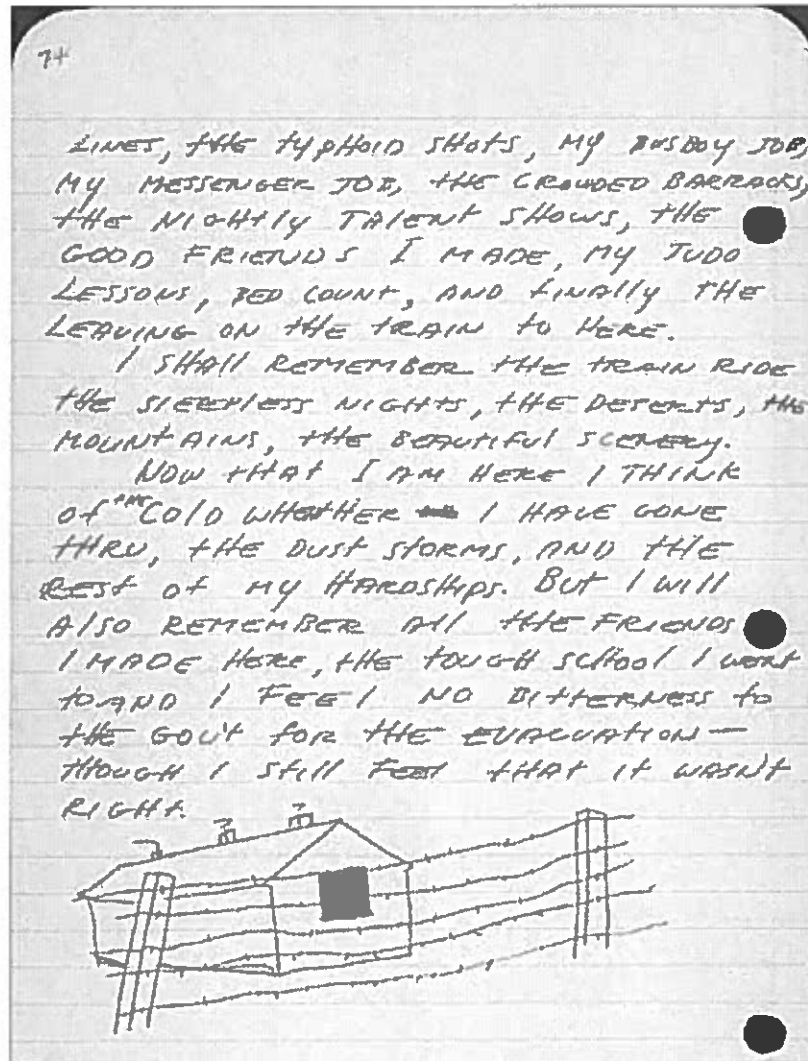 74
LINES, tHE tYPHOID SHOtS, MY BUSBOY JOB,
MY MESSENGER JOB, tHE CROWDED BARRACKS,
tHE NIGHtlY TALENT SHOWS, tHE
GOOD FRIENDS I MADE, MY JUDO
LESSONS, BED COUNT, AND fINAlly THE
LEAVING ON tHE tRAIN to HERE.
I SHAll REMEMBER tHE tRAIN RIDE
tHE SlEEPlESS NIGHtS, tHE DESERtS, tHE
MOUNtAINS, tHE BEAUtIfUl SCENERY.
NOW tHAt I AM HERE I THINK
of tHE COlD WHEtHER I HAVE GONE
tHRU, tHE DUSt StORMS, AND tHE
REST of MY HARDSHIPS. BUt I WIll
AlSO REMEMBER All tHE FRIENDS
I MADE HERE, tHE tOUGH SCHOOl I WENt
to AND I FEEl NO BITTERNESS to
tHE GOV't fOR tHE EVACUATION —
tHOUGH I StIll FEEl tHAt It WASN't
RIGHt.